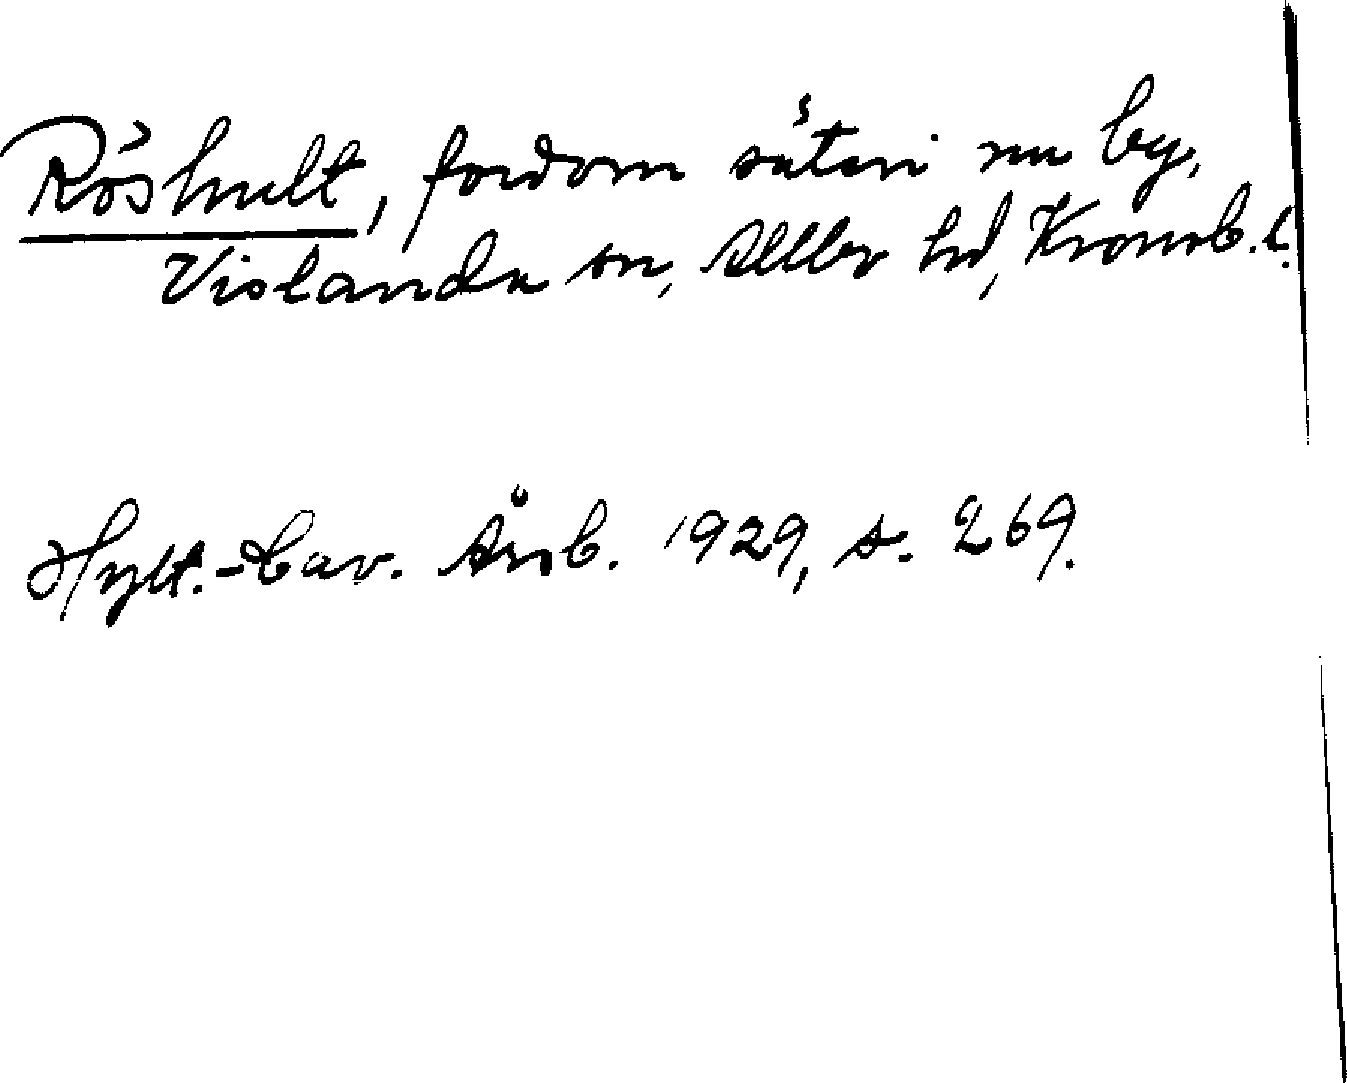 Röshult, fordom säteri nu by,
Vislanda sn, Allbo hd, Kronob. l.
Hylt.-Cav. Årsb. 1929, s. 269.